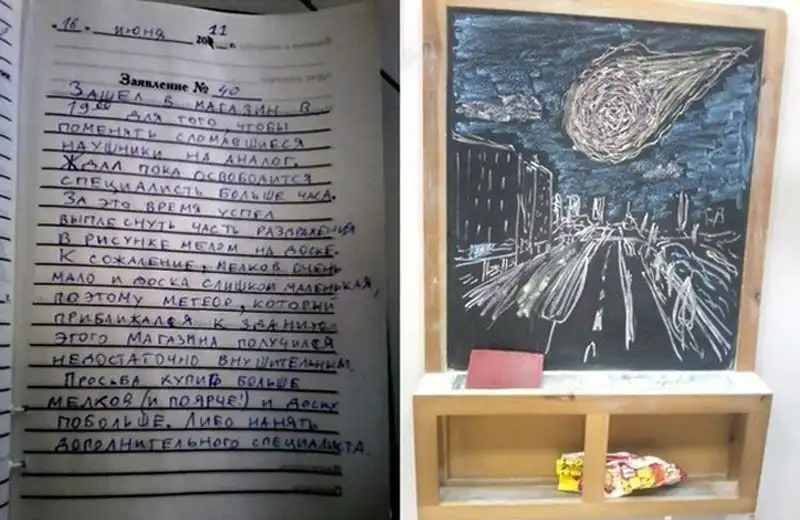 16 июня 20 11
Заявление № 40
ЗАШЕЛ В МАГАЗИН В
19 00 ДЛЯ ТОГО, ЧТОБЫ
ПОМЕНЯТЬ СЛОМАВШИЕСЯ
НАУШНИКИ НА АНАЛОГ.
ЖДАЛ ПОКА ОСВОБОДИТСЯ
СПЕЦИАЛИСТЬ БОЛЬШЕ ЧАСА.
ЗА ЭТО ВРЕМЯ УСПЕЛ
ВЫПЛЕСНУТЬ ЧАСТЬ РАЗДРАЖЕНИЯ
В РИСУНКЕ МЕЛОМ НА ДОСКЕ.
К СОЖАЛЕНИЕ, МЕЛКОВ ОЧЕНЬ
МАЛО И ДОСКА СЛИШКОМ МАЛЕНЬКАЯ,
ПОЭТОМУ МЕТЕОР, КОТОРЫЙ
ПРИБЛИЖАЛСЯ К ЗДАНИЮ
ЭТОГО МАГАЗИНА ПОЛУЧИЛСЯ
НЕДОСТАТОЧНО ВНУШИТЕЛЬНЫМ.
ПРОСЬБА КУПИТЬ БОЛЬШЕ
МЕЛКОВ (И ПОЯРЧЕ!) И ДОСКУ
ПОБОЛЬШЕ. ЛИБО НАНЯТЬ
ДОПОЛНИТЕЛЬНОГО СПЕЦИАЛИСТА.